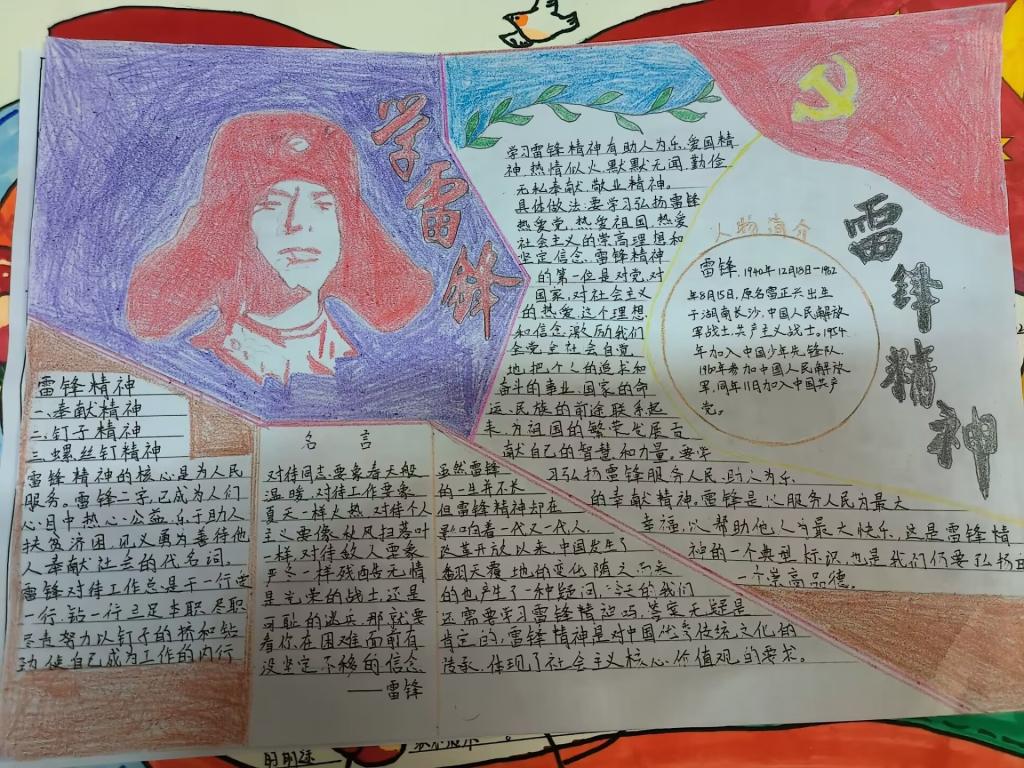 学雷锋
雷锋精神
学习雷锋精神有助人为乐,爱国精
神,热情似火,默默无闻,勤俭
无私奉献,敬业精神。
具体做法:要学习弘扬雷锋
热爱党,热爱祖国,热爱
社会主义的崇高理想和
坚定信念,雷锋精神
的第一但是对党,对
国家,对社会主义
的热爱,这个理想
和信念,激励我们
全党全社会自觉
地把个人的追求和
奋斗的事业,国家的命
运、民族的前途联系起
来,为祖国的繁荣发展贡
献自己的智慧和力量。要学
习弘扬雷锋服务人民,助人为乐
的奉献精神。雷锋是以服务人民为最大
幸福,以帮助他人为最大快乐,这是雷锋精
神的一个典型标识,也是我们仍要弘扬的
一个崇高品德。
人物简介
雷锋,1940年12月18日-1962
年8月15日,原名雷正兴出生
于湖南长沙,中国人民解放
军战士,共产主义战士。1954
年加入中国少年先锋队
1960年参加中国人民解放
军,同年11日加入中国共产
党。
雷锋精神
一、奉献精神
二、钉子精神
三、螺丝钉精神
雷锋精神的核心是为人民
服务。雷锋二字,已成为人们
心目中热心公益,乐于助人
扶贫济困,见义勇为善待他
人奉献社会的代名词。
雷锋对待工作总是干一行爱
一行,钻一行立足本职,尽职
尽责努力以钉子的挤和钻
功,使自己成为工作的内行
名言
对待同志要象春天般
温暖,对待工作要象
夏天一样火热,对待个人
主义要像秋风扫落叶
一样,对待敌人要象
严冬一样残酷无情
是光荣的战士,还是
可耻的逃兵,那就要
看你在困难面前有
没坚定不移的信念
——雷锋
虽然雷锋
的一生并不长
但雷锋精神却在
影响着一代又一代人,
改革开放以来,中国发生了
翻天覆地的变化,随之而来
的也产生了一种疑问,今天的我们
还需要学习雷锋精神吗,答案无疑是
肯定的,雷锋精神是对中国优秀传统文化的
传承,体现了社会主义核心价值观的要求。
的前途